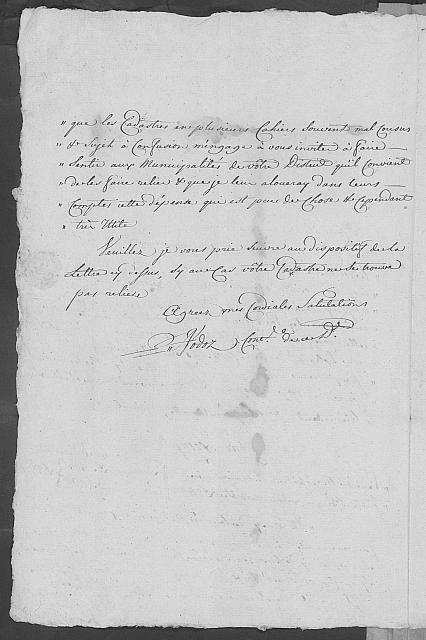 " que les Cadastres en plusieurs Cahiers Souvent mal Cousus
" & Sujet à Confusion m'engage à vous inviter à faire
" Sentir aux Municipalités de vôtre District qu'il Convient
" de les faire relier & que je leur aloueray dans leurs
" Comptes cette dépense que est peu de Chose & Cependant
" trèz Utile
Veuillez je vous prie suivre au dispositif de la
Lettre cy dessus, Sy au Cas vôtre Cadastre ne se trouve
pas reliése
Agreez mes Cordiales Salutations
Jodoz